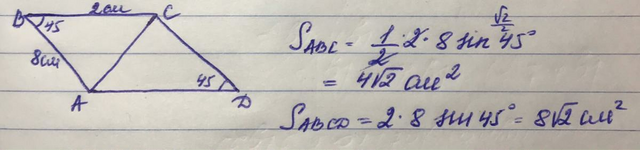 B 2см C
45
8см
A 45 D
S_ABC = 1/2 · 2 · 8 sin 45° √2/2
= 4√2 см²
S_ABCD = 2 · 8 sin 45° = 8√2 см²